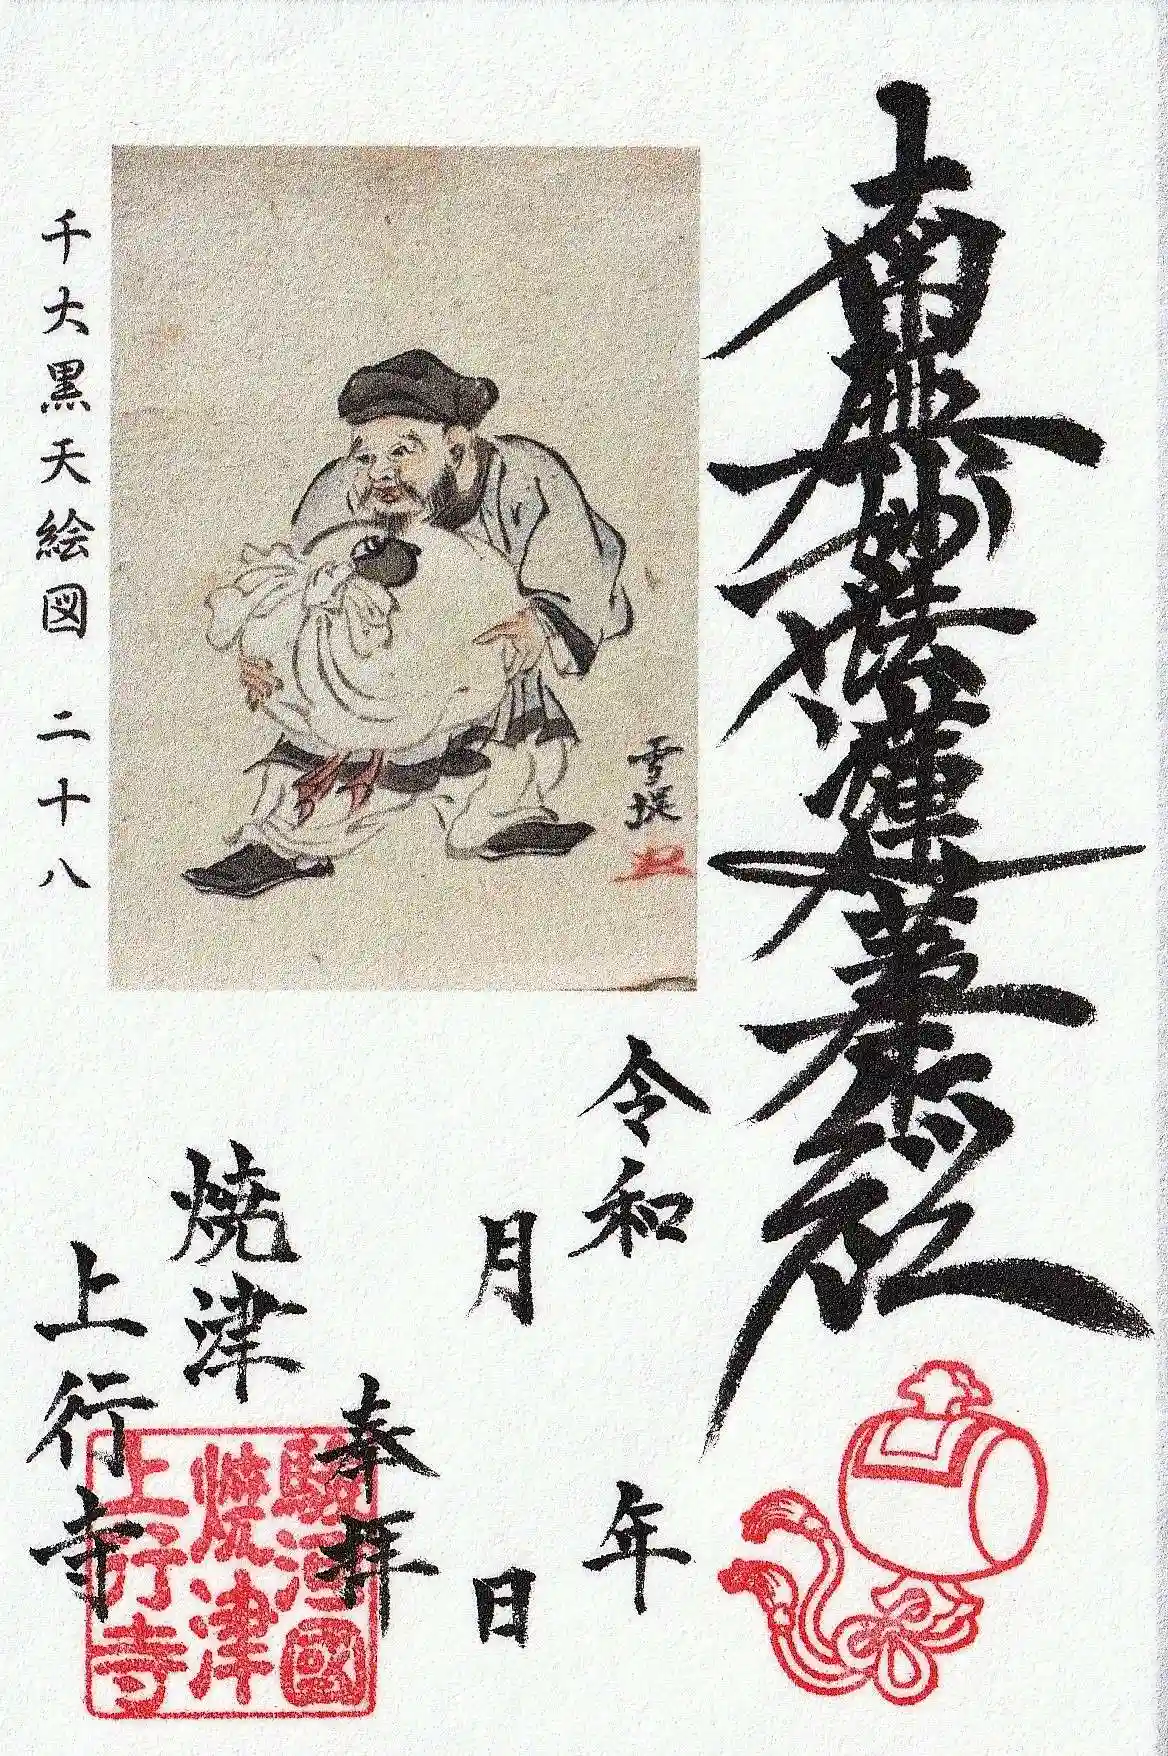 南無妙法蓮華経
千大黒天絵図 二十八
雪堤
令和 年
月 日
奉拝
焼津
上行寺
駿河國
焼津
上行寺